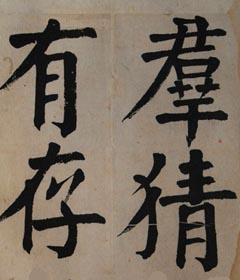 羣猜
有存